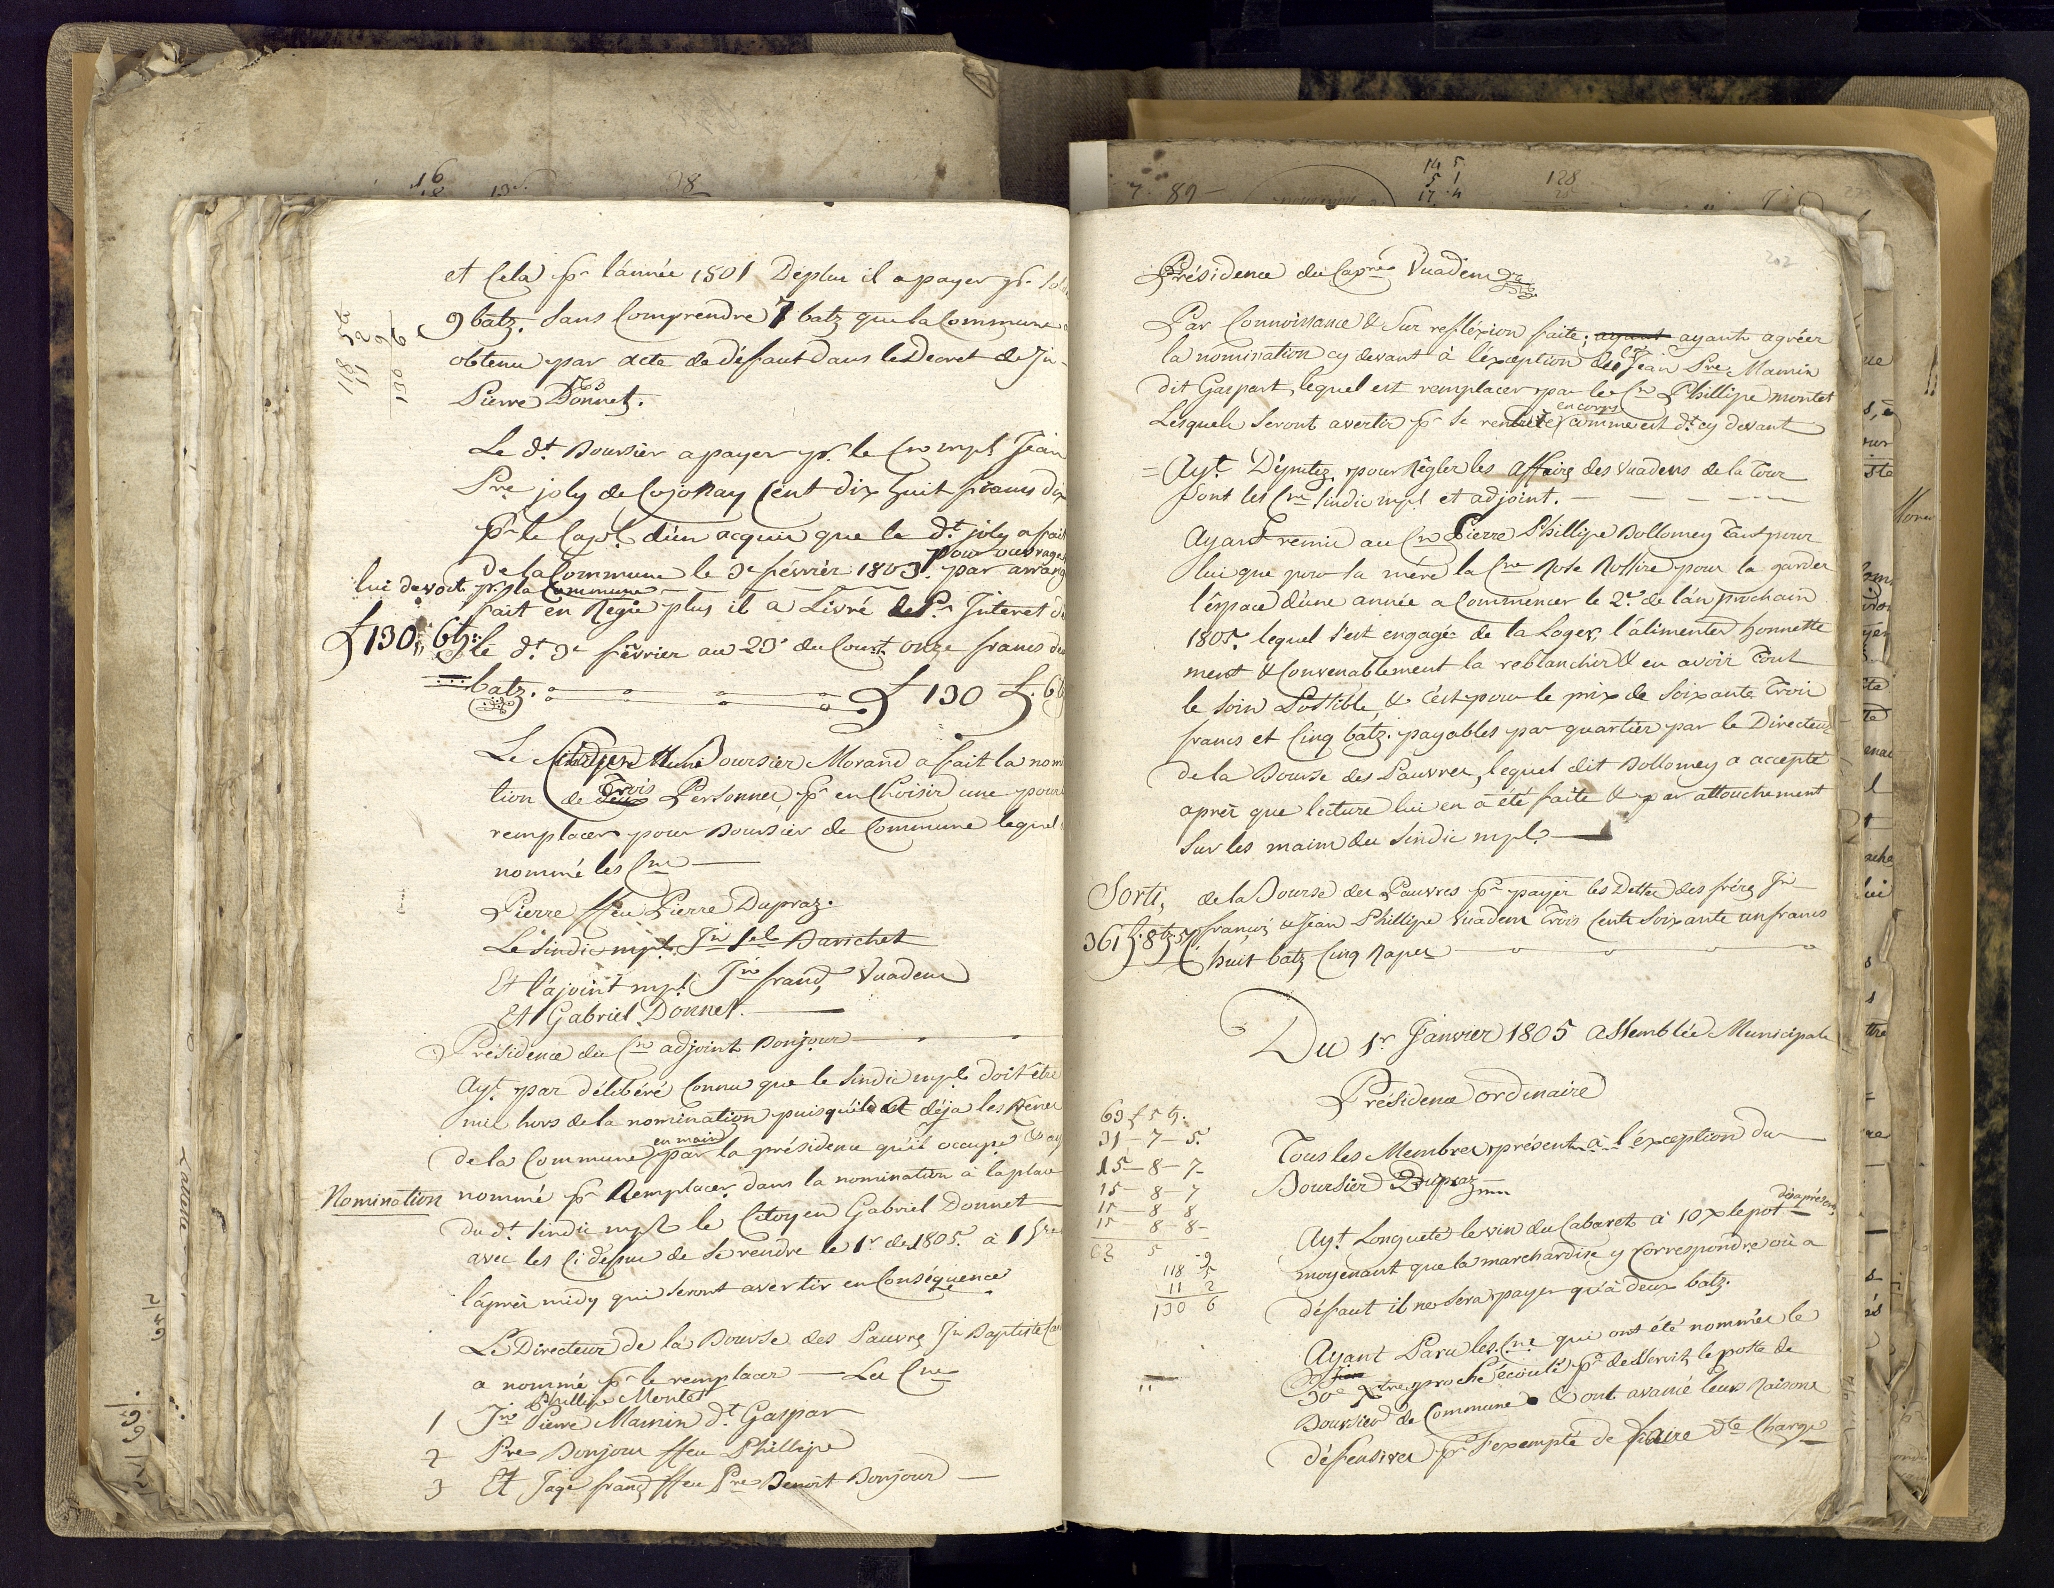 et Cela pr l'année 1801 Deplus il a payer pr
9 batz. Sans Comprendre 7 batz que la Commune
obtenu par acte de défaut dans le Decret de Jn
Pierre Donnet.
Le dt. Boursier a payer pr. le Cn mpl Jean
Pre joly de Cojonay Cent dix huit francs dix
pr le Capl. d'un acquis que le dt. joly a fait
de la Commune le 3e février 1803. par arrang
pour ouvrages
lui devoit pr. la Commune
fait en Regie plus il a Livré le Pr. Interet du
£ 130,, 6 bz:
le dt. 3e février au 23e du Court onze francs deux
batz. £ 130 £. 6 b
Le Citoyen Boursier Morand a fait la nom
tion de trois Personnes pr en Choisir une pour
remplacer pour Boursier de Commune lequel
nommé les Cns
Pierre ffeu Pierre Dupraz.
Le Sindic mpl. Jn Barichet
Et l'ajoint mpl. Jn franç Vuadens
Et Gabriel Donnet.
Présidence du Cn adjoint Bonjour
Ayt. par délibéré Connu que le Sindic mpl. doit être
mis hors de la nomination puisqu'il at déja les Rênes
de la Commune en main par la présidence qu'il occupe & ay
Nomination
nommé pr Remplacer dans la nomination à la place
du dt. Sindic mpl le Citoyen Gabriel Donnet
avec les Ci dessus de Se rendre le 1r de 1805. à 1 hre
l'après midy qui seront avertir en Conséquence
Le Directeur de la Bourse des Pauvres Jn Baptiste
a nommé pr le remplacer — Les Cns
Phillipe Montet
1 Jn Pierre Mamin dt. Gaspar
2 Pre Bonjour ffeu Phillipe
3 Et Jaqe franç ffeu Pre Benoit Bonjour
118 5
11 2 9
130 6
202
Présidence du Capne Vuadens
Par Connoissance & Sur refléxion faite, ayant ayants agréer
la nomination cy devant à l'exception du Cn Jean Pre Mamin
dit Gaspart, lequel est remplacer par le Cn Phillipe montet
Lesquels Seront avertir pr Se rendre en corps comme est dt. cy devant
= Ayt. Députez pour Régler les affaires des Vuadens de la Tour
Sont les Cns Sindic mpl et adjoint.
Ayant remis au Cn Pierre Phillipe Dollomey Tant pour
lui que pour Sa mère la Cne Rose Rossire pour la garder
l'éspace d'une année a Commencer le 2e. de l'an prochain
1805. lequel s'est engagée de la Loger, l'alimenter honnette
ment & Convenablement la reblanchir & en avoir Tout
le soin Possible & c'est pour le prix de Soixante Trois
francs et Cinq batz. payables par quartier par le Directeur
de la Bourse des Pauvres, lequel dit Dollomey a accepté
après que lecture lui en a été faite & par attouchement
Sur les mains du Sindic mpl.
Sorti,
de la Bourse des Pauvres pr payer les Dettes des frérez Jn
361 £ 8 bz 5 r
françois & Jean Phillipe Vuadens Trois Cents Soixante un francs
huit batz Cinq Rapes
Du 1r Janvier 1805 assemblée Municipale
Présidence ordinaire
Tous les Membres présents à l'éxception du
Boursier Dupraz
Ayt. Longueté le vin du Cabaret à 10 x le pot dès à présent,
moyenant que la marchardise y Correspondre où a
défaut il ne Sera payer qu'à deux batz.
Ayant Paru les Cns qui ont été nommées le
30e xbre proche écoulé pr deservir le poste de
Boursier de Commune & ont avancé leurs Raisons
défensives pr s'exempté de faire dte Charge
63 £ 5 bz.
31 - 7 - 5.
15 - 8 - 7
15 - 8 - 7
15 - 8 8
15 - 8 - 8 -
63 5
118 5 9
11 2
130 6